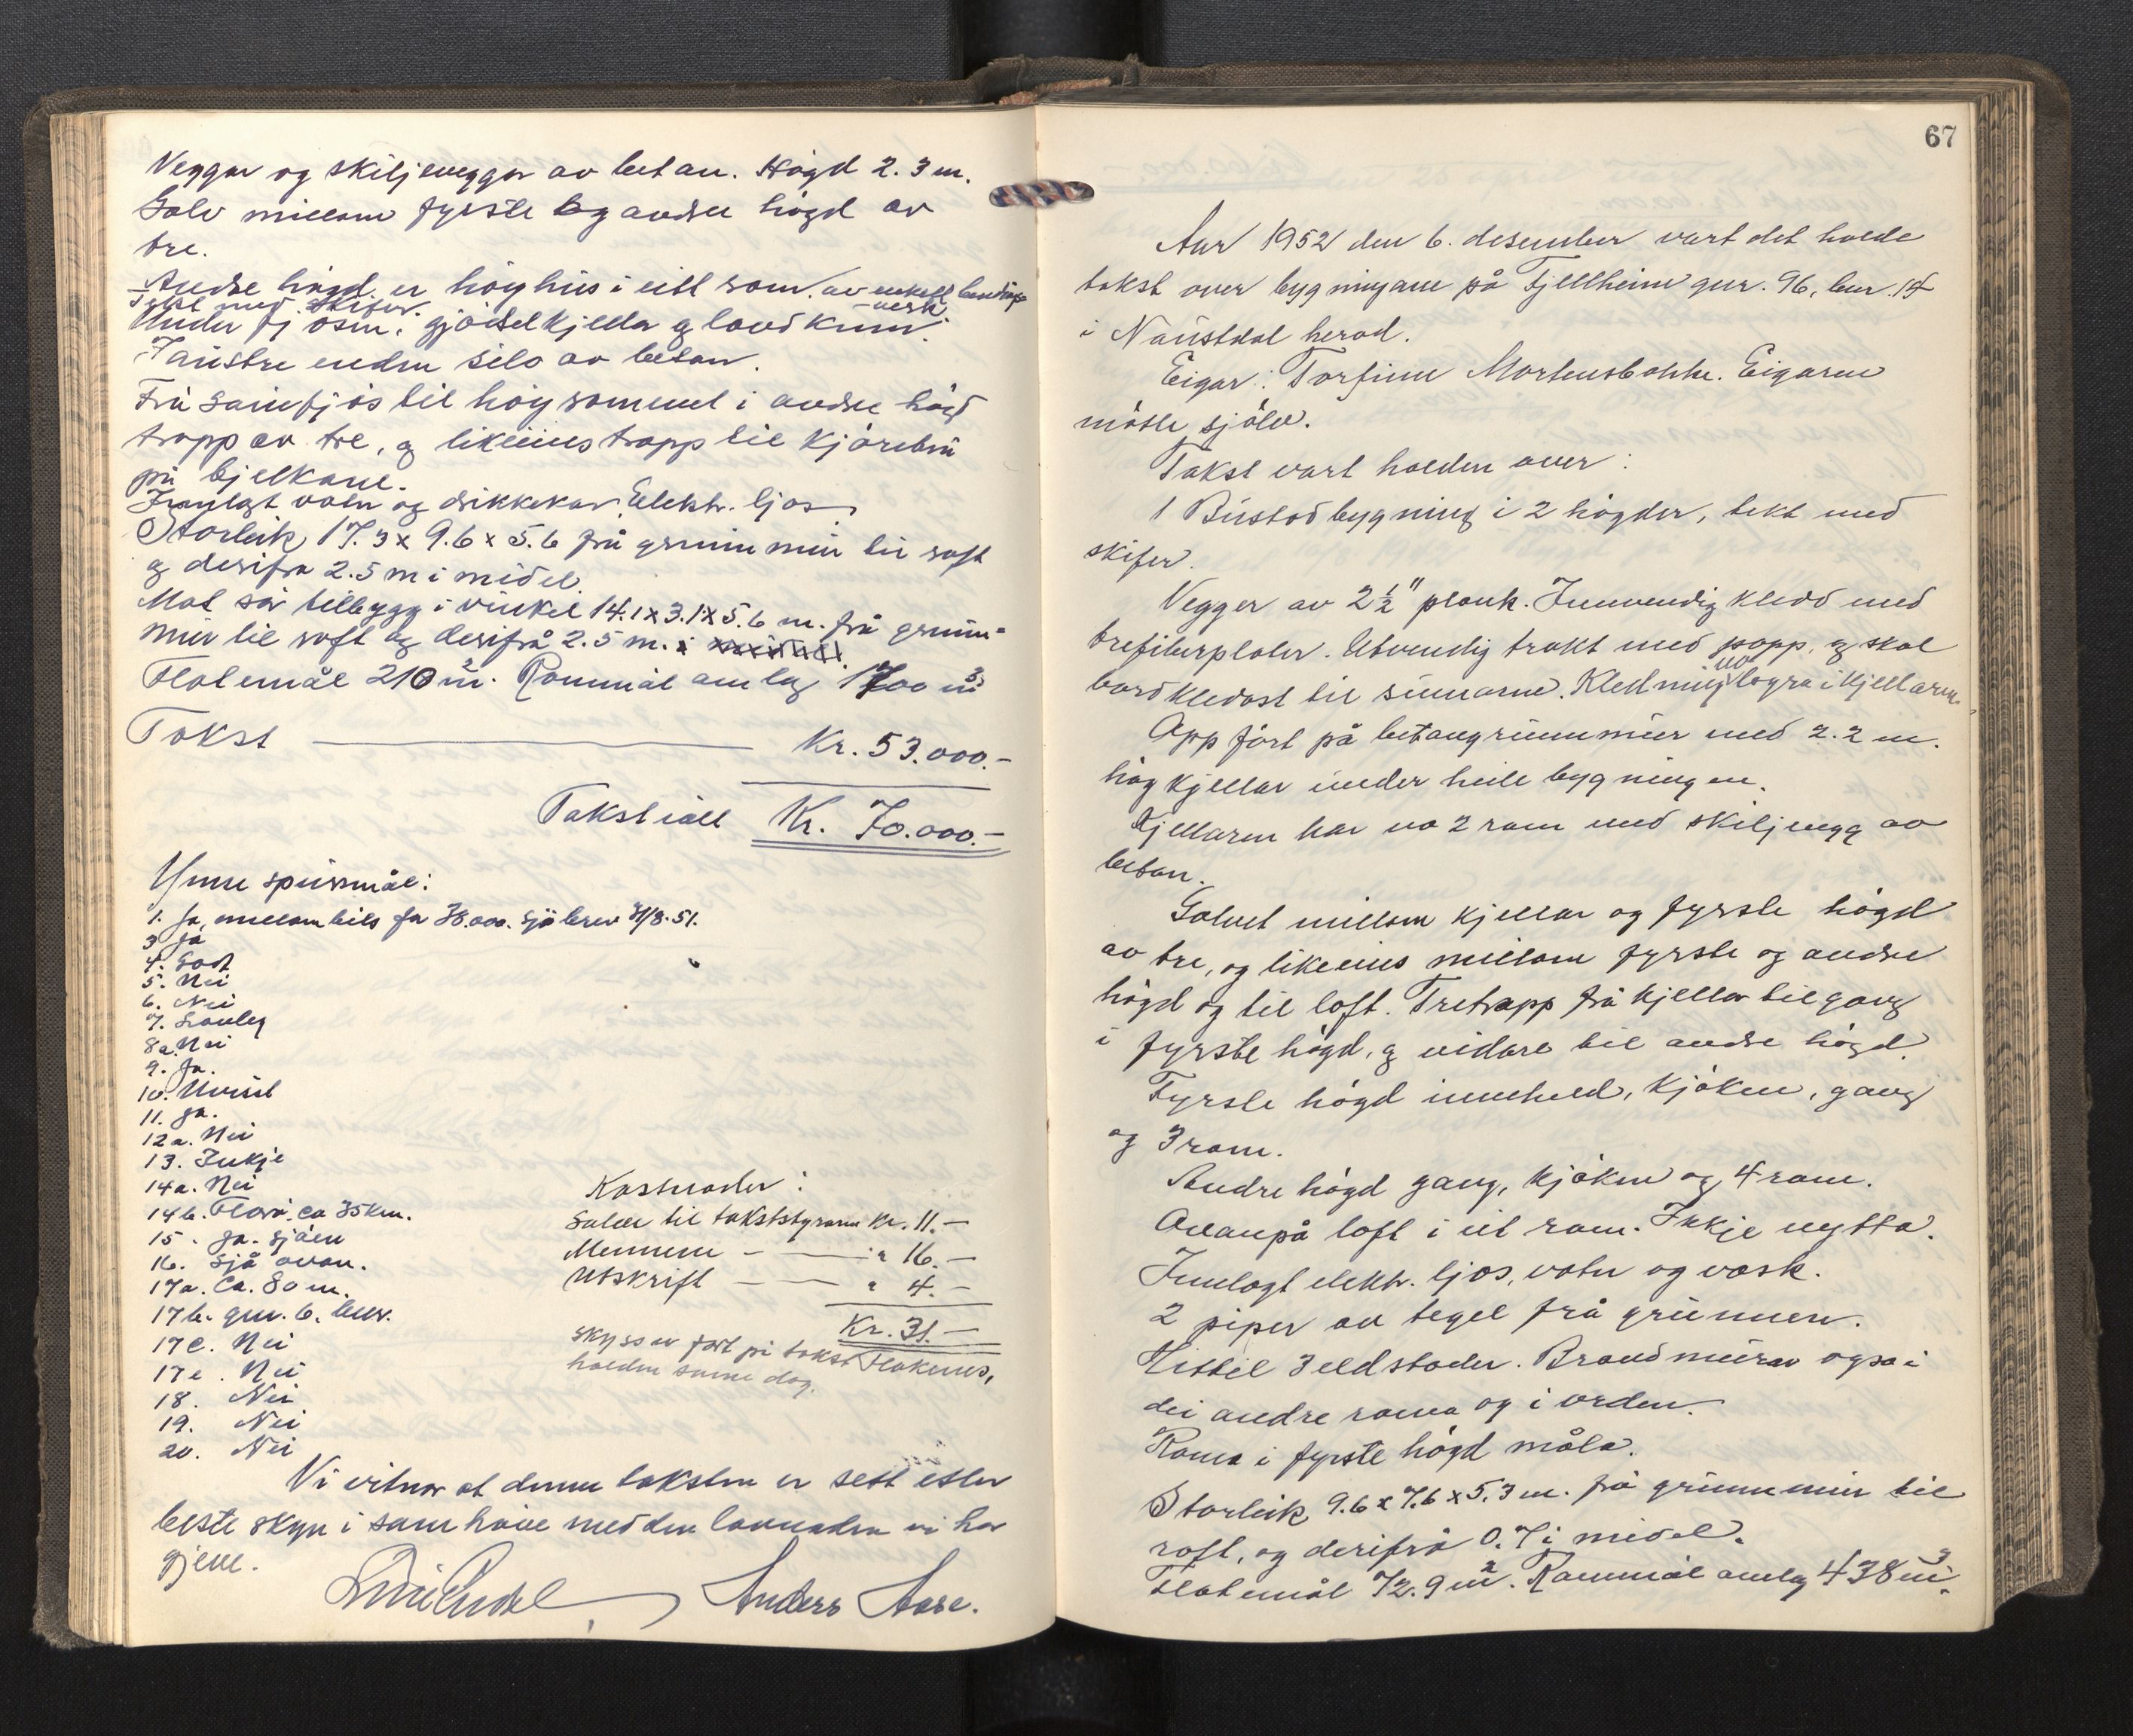 Veggar og skiljeveggar av betong. Høgd 2.3 m.
Golv millom fyrste og andre høgd av
tre.
Andre høgd er høyhus i eitt rom. av enkelt bindings-
verk
Tekt med skifer.
Under fjøsen: gjødselkjellar og landkum.
I austre enden silo av betong.
Frå sauefjøs til høyrommet i andre høgd
trapp av tre, og likeeins trapp til kjørebru
på bjelkane.
Innlagt vatn og drikkekar. Elektr. ljos.
Storleik 17.3 x 9.6 x 5.6 frå grunnmur til raft
og derifrå 2.5 m i midel.
Mot sør tilbygg i vinkel 14.1 x 3.1 x 5.6 m. frå grunn-
mur til raft og derifrå 2.5 m.
Flatemål 210 m². Rommål omlag 1700 m³
Takst — Kr. 53.000.-
Takst i alt Kr. 70.000.-
Ymse spursmål:
1. Ja, millombils for 38.000. Sjå brev 31/8-51.
3 Ja
4. God
5. Nei
6. Nei
7. Vanleg
8a. Nei
9. Ja.
10. Uvisst
11. Ja.
12a. Nei
13. Inkje
14a. Nei
14b. Florø. ca 35 km.
15. Ja. Sjøen
16. Sjå ovan.
17a. Ca. 80 m.
17b. gnr. 6. bnr.
17c. Nei
17e. Nei
18. Nei
19. Nei
20. Nei
Kostnader:
Salær til takststyraren Kr. 11.-
Mennene — " 16.-
Utskrift — " 4.-
Kr. 31.-
Skyss er ført på takst Flokenes,
halden same dag.
Vi vitnar at denne taksten er sett etter
beste skyn i samhøve med den lovnaden vi har
gjeve.
Anders Aase.
67
Aar 1952 den 6. desember vart det halde
takst over bygningane på Fjellheim gnr. 96, bnr. 14
i Naustdal herad.
Eigar: Torfinn Mortensbakke. Eigaren
møtte sjølv.
Takst vart halden over:
1 Bustadbygning i 2 høgder, tekt med
skifer.
Vegger av 2½" plank. Innvendig kledd med
trefiberplater. Utvendig trekt med papp, og skal
bordkledast til sumaren. Kledning no lagra i kjellaren.
Oppført på betongrunnmur med 2.2 m.
høg kjellar under heile bygningen.
Kjellaren har no 2 rom med skiljevegg av
betong.
Golvet millom kjellar og fyrste høgd
av tre, og likeeins millom fyrste og andre
høgd og til loft. Tretrapp frå kjellar til gang
i fyrste høgd, og vidare til andre høgd.
Fyrste høgd inneheld, kjøken, gang
og 3 rom.
Andre høgd gang, kjøken og 4 rom.
Ovanpå loft i eit rom. Ikkje nytta.
Innlagt elektr. ljos, vatn og vask.
2 piper av tegel frå grunnen.
Hittil 3 eldstader. Brandmurar også i
dei andre roma og i orden.
Roma i fyrste høgd måla.
Storleik 9.6 x 7.6 x 5.3 m. frå grunnmur til
raft, og derifrå 0.7 i midel.
Flatemål 72.9 m². Rommål omlag 438 m³.